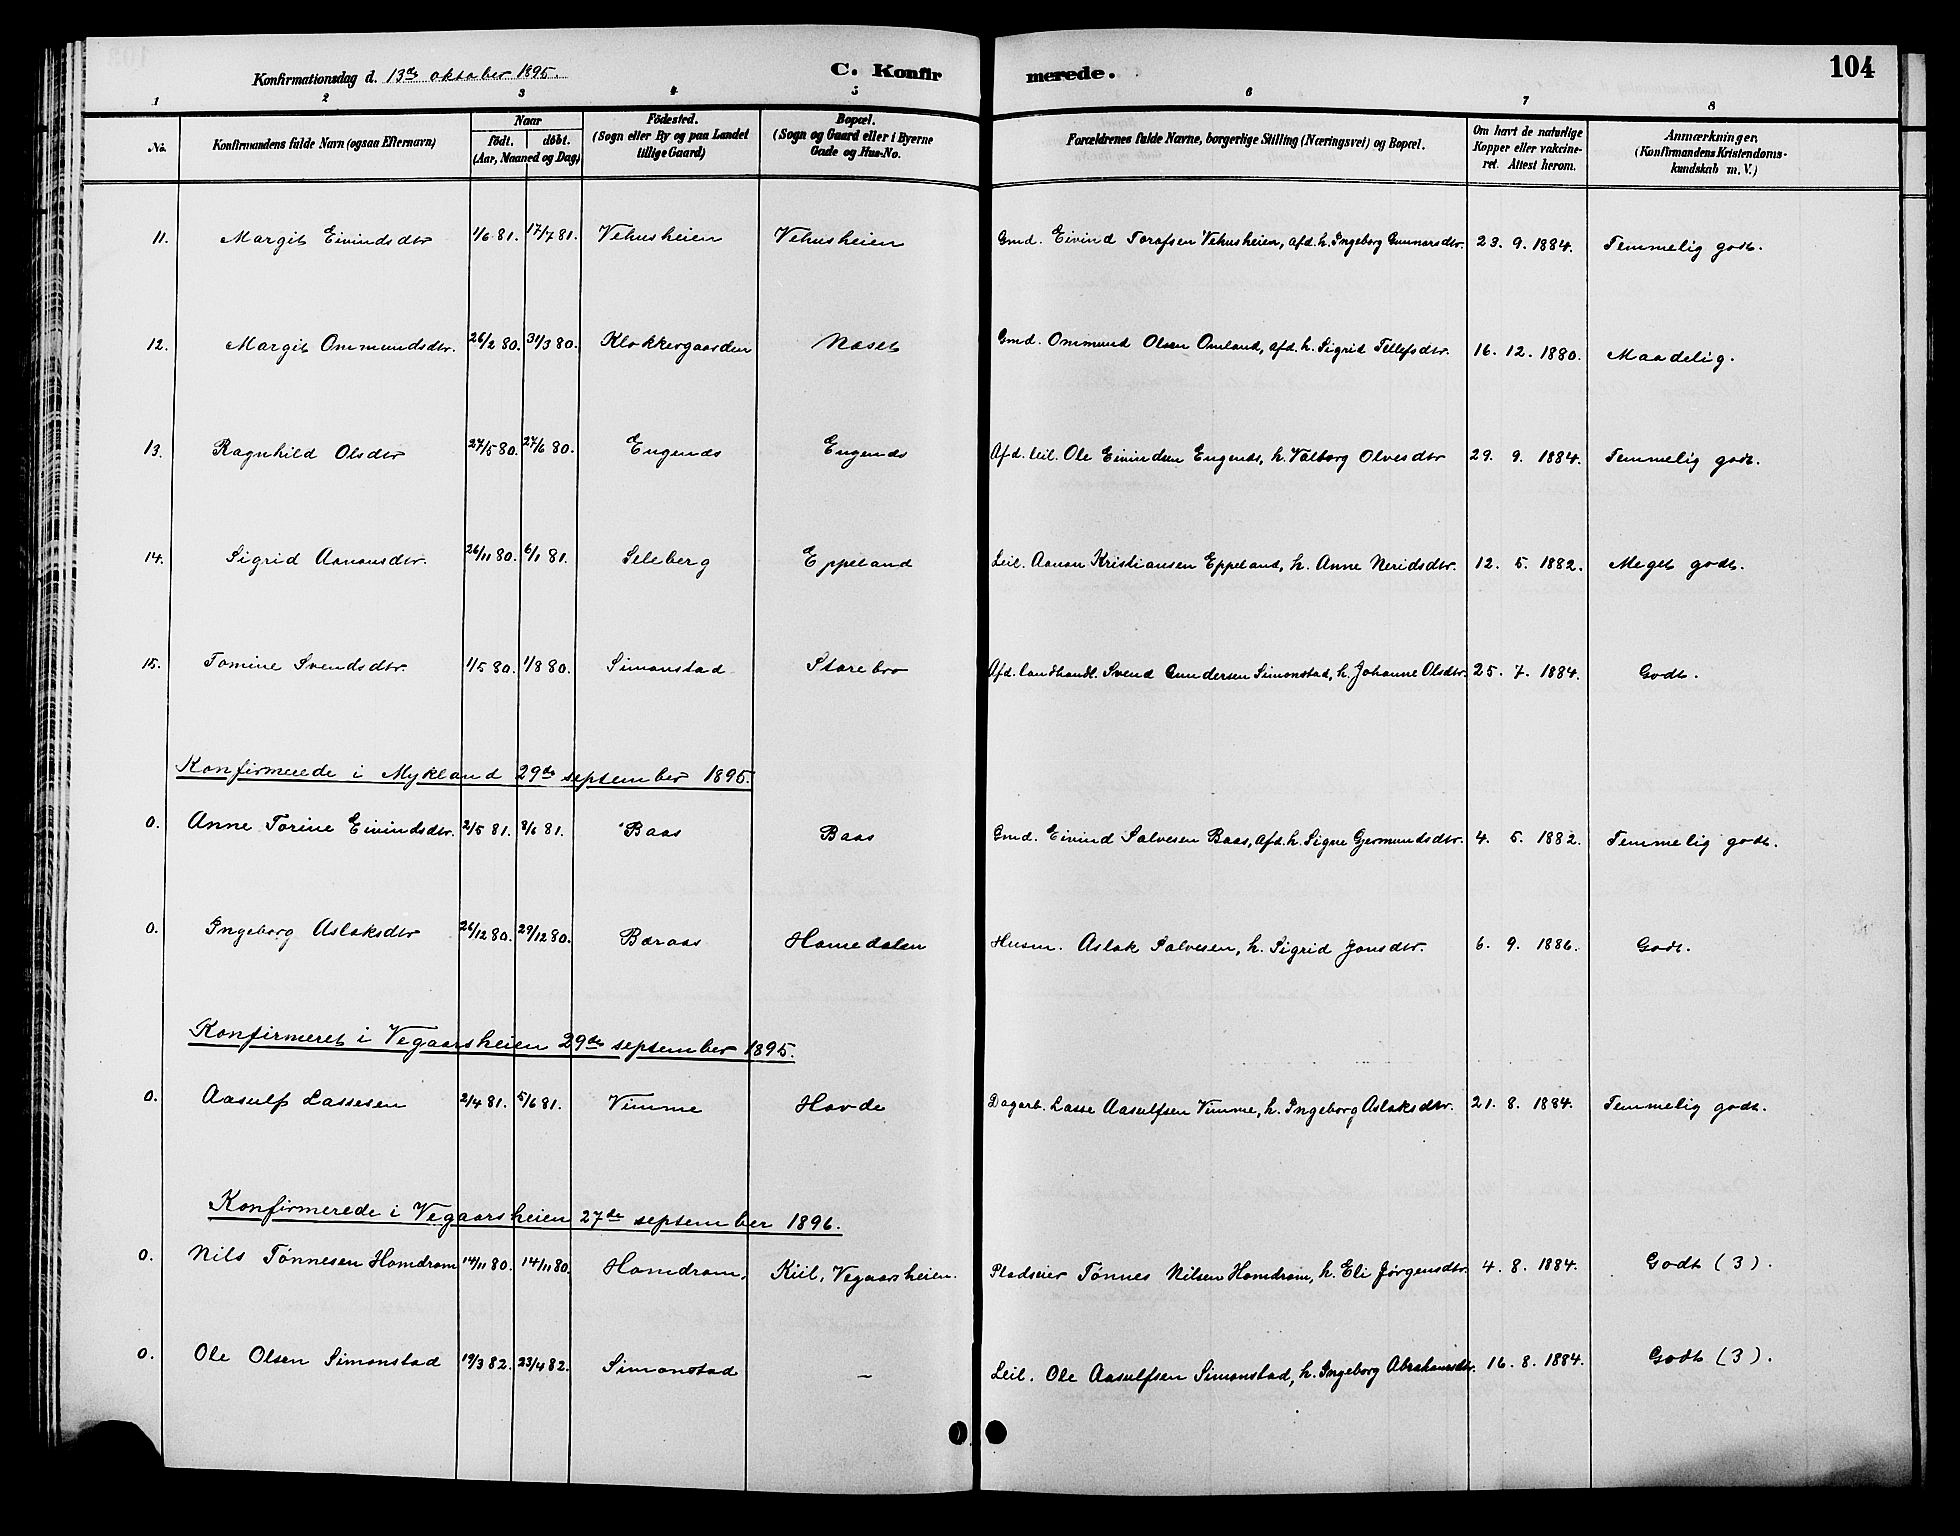 Konfirmationsdag d. 13de oktober 1895. C. Konfirmerede. 104
1 2 3 4 5 6 7 8
No.
Konfirmandens fulde Navn (ogsaa Efternavn)
Naar
födt. döbt.
(Aar, Maaned og Dag)
Födested.
(Sogn eller By og paa Landet
tillige Gaard)
Bopæl.
(Sogn og Gaard eller i Byerne
Gade og Hus-No.
Forældrenes fulde Navne, borgerlige Stilling (Næringsvei) og Bopæl.
Om havt de naturlige
Kopper eller vakcine-
ret. Attest herom.
Anmærkninger,
(Konfirmandens Kristendoms-
kundskab m. V.)
11. Margit Eivindsdtr 1/6 81. 17/7 81. Vehusheien Vehusheien Gmd. Eivind Torafsen Vehusheien, afd. h. Ingeborg Gunnarsdtr. 23. 9. 1884. Temmelig godt.
12. Margit Ommundsdtr. 26/2 80. 31/3 80. Klokkergaarden Næset Gmd. Ommund Olsen Omland, afd. h. Sigrid Tellefsdtr. 16. 12. 1880. Maadelig.
13. Ragnhild Olsdtr 27/5 80. 27/6 80. Engenes Engenes Afd. leil. Ole Eivindsen Engenes, h. Valborg Olvesdtr 29. 9. 1884. Temmelig godt.
14. Sigrid Aanonsdtr. 26/11 80. 6/1 81. Seleberg Eppeland Leil. Aanon Kristiansen Eppeland, h. Anne Neridsdtr. 12. 5. 1882. Meget godt.
15. Tomine Svendsdtr. 1/5 80. 1/8 80. Simonstad Storebro Afd. landhandl. Svend Gundersen Simonstad, h. Johanne Olsdtr. 25. 7. 1884. Godt.
Konfirmerede i Mykland 29de september 1895.
0. Anne Torine Eivindsdtr. 2/5 81. 8/6 81. Baas Baas Gmd. Eivind Salvesen Baas, afd. h. Signe Gjermundsdtr. 4. 5. 1882. Temmelig godt.
0. Ingeborg Aslaksdtr 26/12 80. 29/12 80. Bæraas Homedalen Husm. Aslak Salvesen, h. Sigrid Jonsdtr. 6. 9. 1886. Godt.
Konfirmeret i Vegaarsheien 29de september 1895.
0. Aasulf Lassesen 2/4 81. 5/6 81. Vimme Hovde Dagarb. Lasse Aasulfsen Vimme, h. Ingeborg Aslaksdtr. 21. 8. 1884. Temmelig godt.
Konfirmerede i Vegaarsheien 27de september 1896.
0. Nils Tönnesen Homdrom 14/11 80. 14/11 80. Homdrom. Kiil, Vegaarsheien. Pladseier Tönnes Nilsen Homdrom, h. Eli Jörgensdtr. 4. 8. 1884. Godt (3).
0. Ole Olsen Simonstad 19/3 82. 23/4 82. Simonstad — Leil. Ole Aasulfsen Simonstad, h. Ingeborg Abrahamsdtr. 16. 8. 1884. Godt (3).